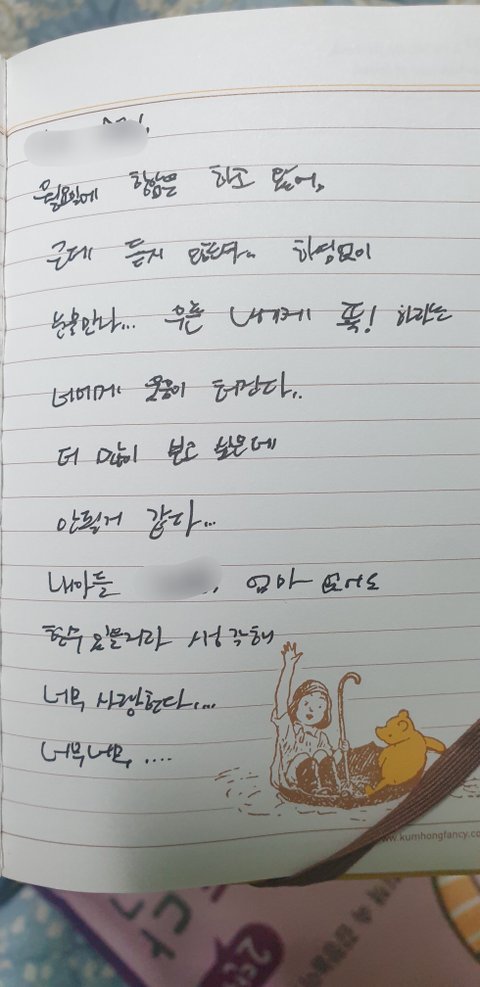 월요일에 항암은 하고 왔어,
근데 듣지 않는다.. 하염없이
눈물만나... 우는 나에게 푹! 하라는
너에게 웃음이 터진다..
더 많이 보고 싶은데
안될거 같다...
내아들 엄마 없어도
현수 엄마라 생각해
너무 사랑한다....
너무너무, ....
www.kumhongfancy.co